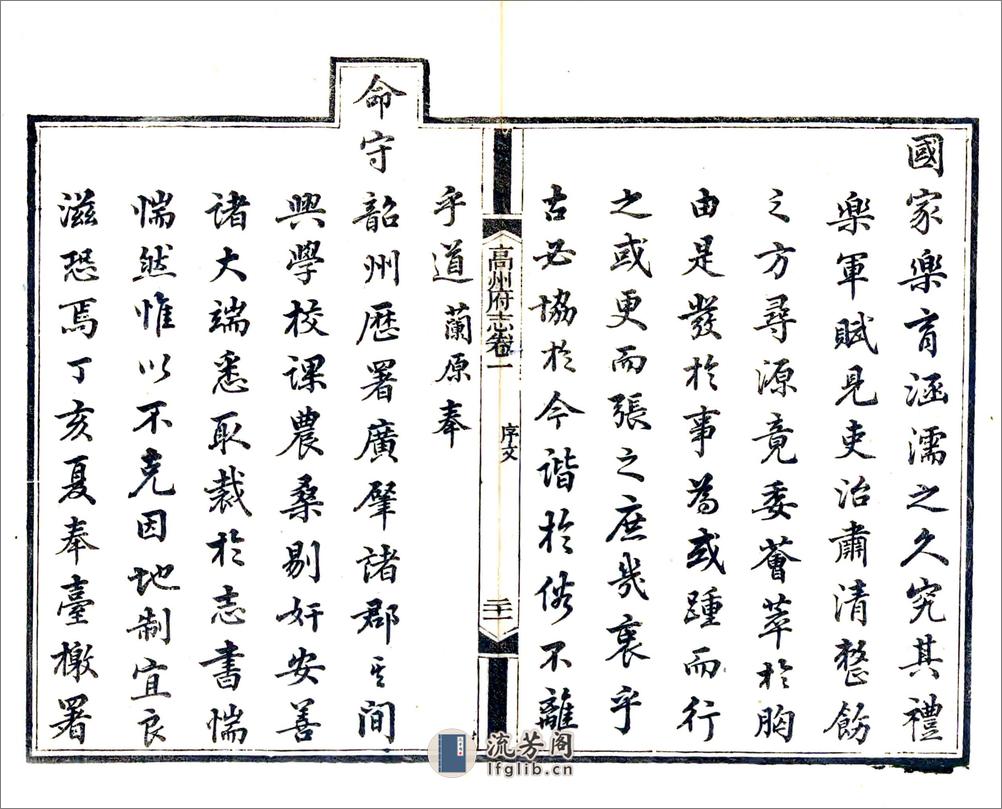 國家樂育涵濡之久究其禮
樂軍賦見吏治肅清整飭
之方尋源竟委薈萃於胸
由是發於事為或踵而行
之或更而張之庶幾衷乎
古必協於今諧於俗不離
高州府志卷一
序文
三十一
乎道蘭原奉
命守
韶州歷署廣肇諸郡其間
興學校課農桑剔奸安善
諸大端悉取裁於志書惴
惴然惟以不克因地制宜良
滋恐焉丁亥夏奉臺檄署
流芳阁
lfglib.cn